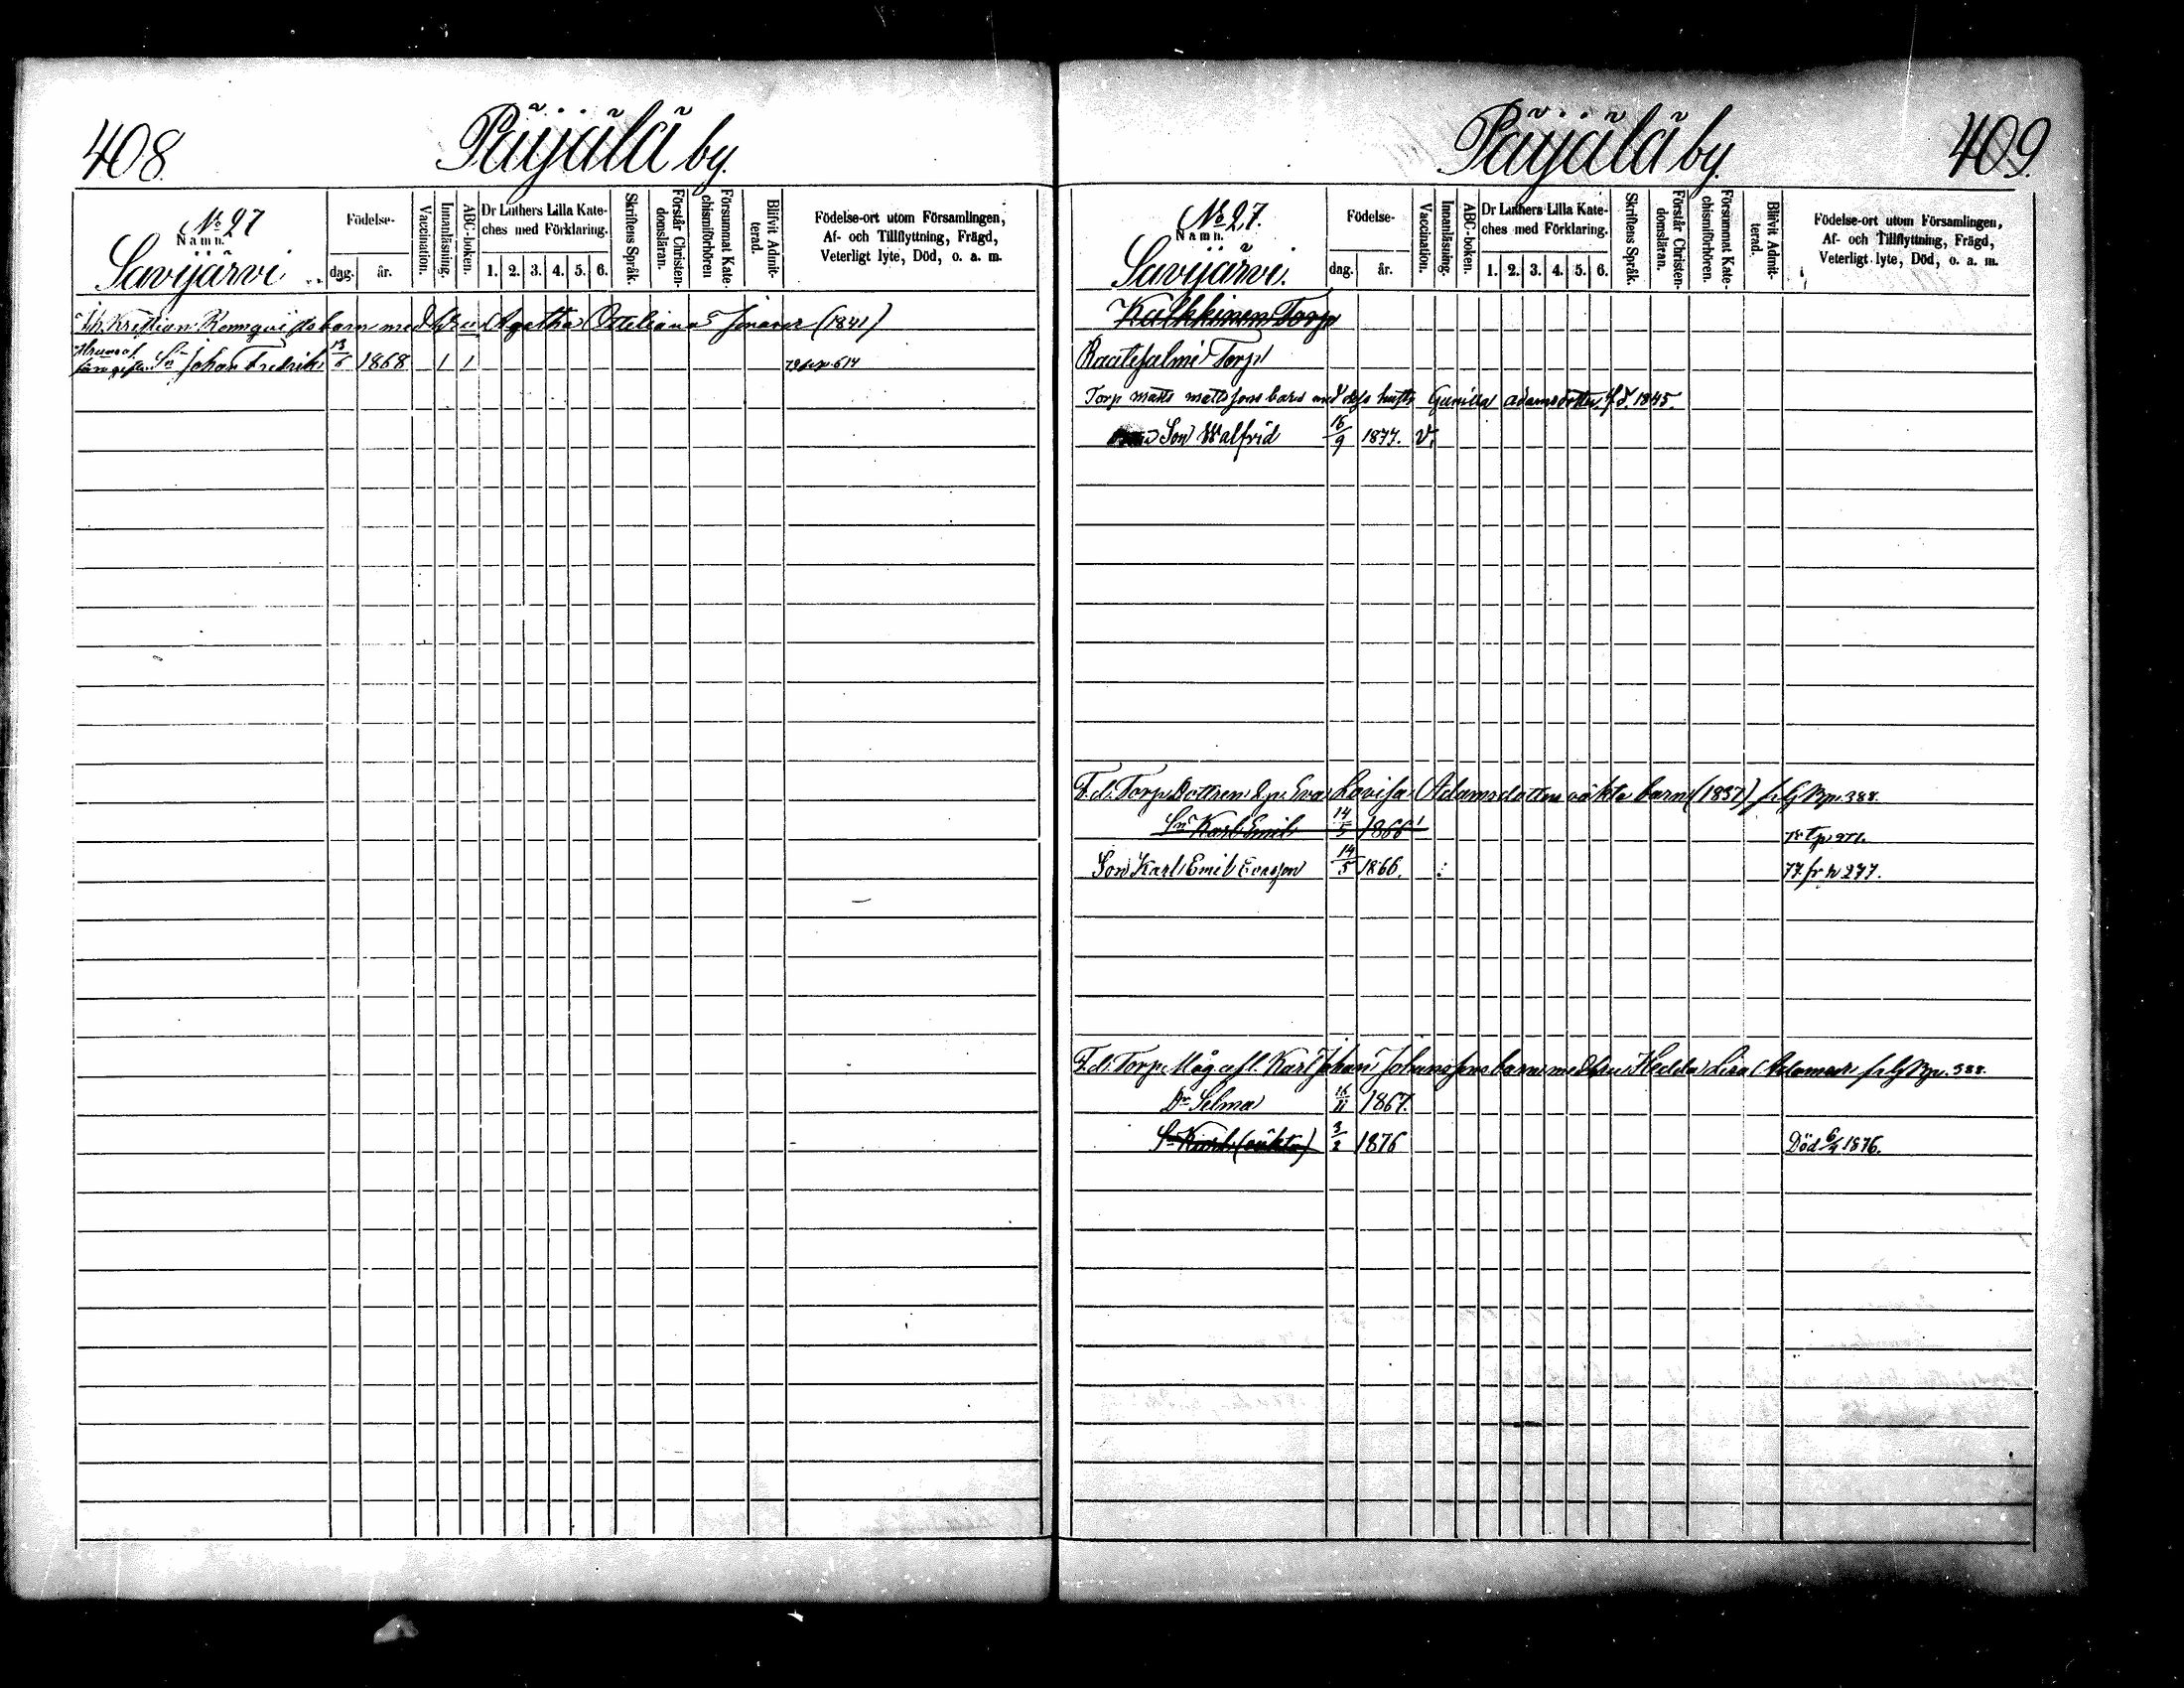 408.
Päijälä by.
No 27
Namn.
Savijärvi
Födelse-
dag. år.
Vaccination.
Innanläsning.
ABC-boken.
Dr Luthers Lilla Kate-
ches med Förklaring.
1. 2. 3. 4. 5. 6.
Skriftens Språk.
Förstår Christen-
domsläran.
Försummat Kate-
chismiförhören
Blifvit Admit-
terad.
Födelse-ort utom Församlingen,
Af- och Tillflyttning, Frägd,
Veterligt lyte, Död, o. a. m.
Kristian Rennqvists barn med Agatha (1841)
Sn Johan Fredrik 13/6 1868 1 1 614
Päijälä by.
409.
No 27.
Namn.
Savijärvi.
Födelse-
dag. år.
Vaccination.
Innanläsning.
ABC-boken.
Dr Luthers Lilla Kate-
ches med Förklaring.
1. 2. 3. 4. 5. 6.
Skriftens Språk.
Förstår Christen-
domsläran.
Försummat Kate-
chismiförhören.
Blifvit Admit-
terad.
Födelse-ort utom Församlingen,
Af- och Tillflyttning, Frägd,
Veterligt lyte, Död, o. a. m.
Kalkkinen Torp
Raatesalmi Torp
Torp Matts Mattssons barn med dess hustr Gunilla Adamsdotter f.d. 1845.
Son Walfrid 16/9 1877. v.
F.d. Torp. Dottren Eva Lovisa Adamsdotters oäkta barn (1837) 388.
Sn Karl Emil 14/5 1866 1
Son Karl Emil Evasson 14/5 1866. 77. fr. p 277.
F.d. Torp. Måg afl. Karl Johan Johanssons barn med Hedda Lisa Adamsdr 388.
Dr Selma 16/11 1867.
Sn Karl (oäkta) 3/2 1876 Död 6/4 1876.